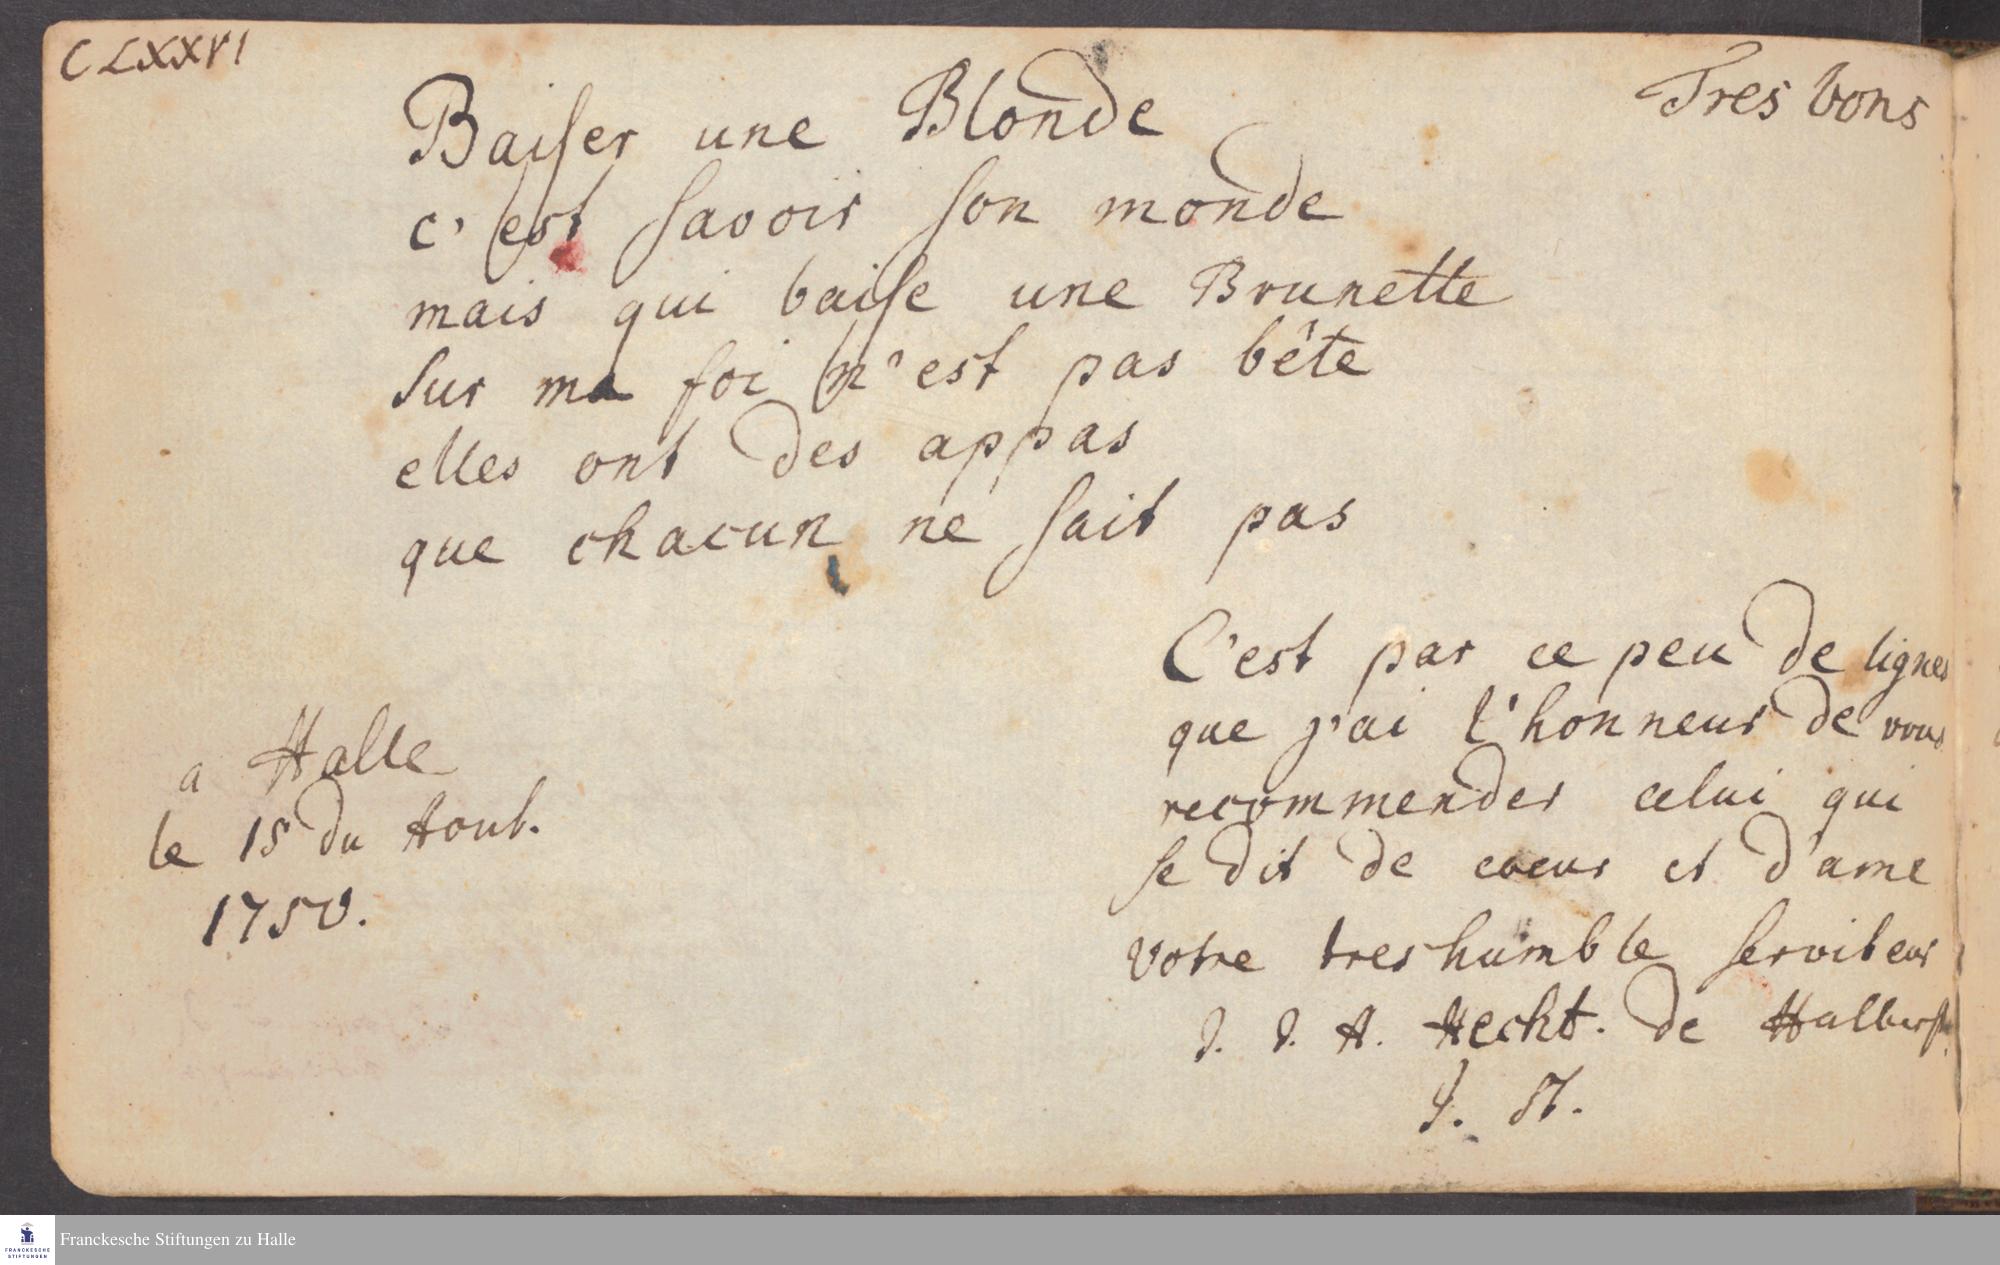 CLXXVI
Tres bons
Baiser une Blonde
c'est savoir son monde
mais qui baise une Brunette
sur ma foi n'est pas bête
elles ont des appas
que chacun ne sait pas
C'est par ce peu de lignes
que j'ai l'honneur de vous
recommender celui qui
se dit de coeur et d'ame
votre treshumble serviteur
J. J. A. Hecht. de Halberst.
a Halle
le 15 du Aout.
1750.
FRANCKESCHE
STIFTUNGEN
Franckesche Stiftungen zu Halle